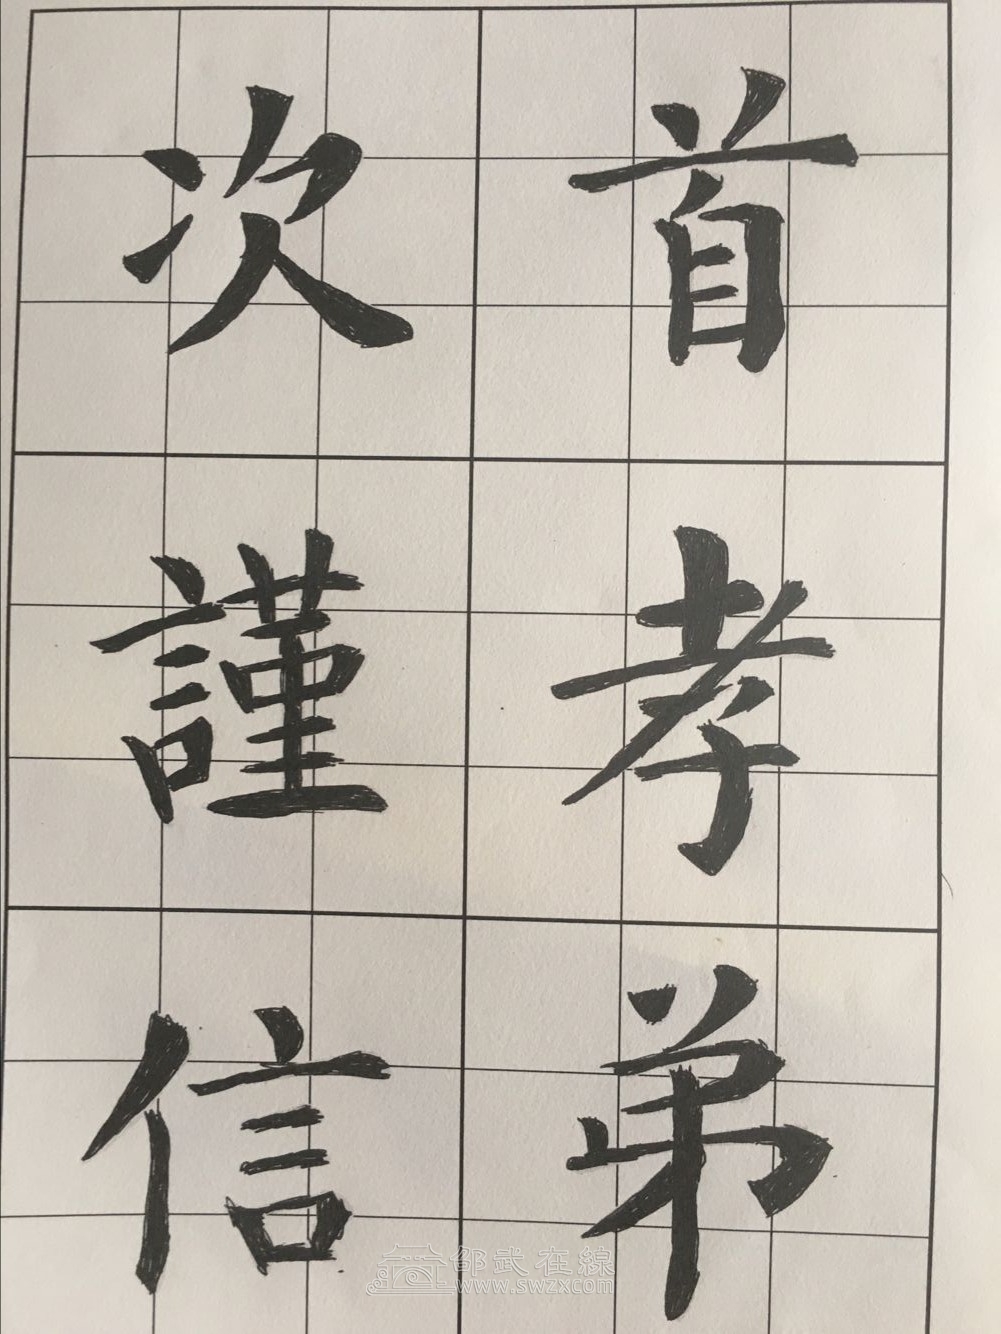 首孝弟
次謹信
邵武在線
www.swzx.com